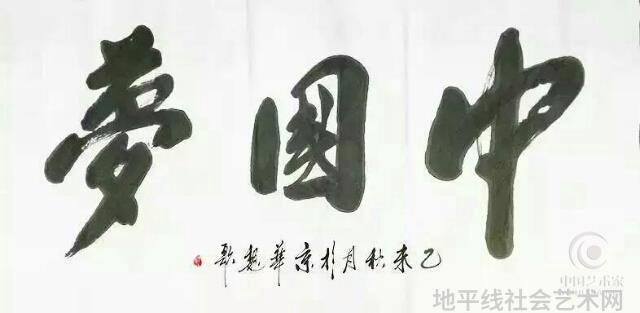 中國夢
乙未秋月於京華魏歌
中国艺术家
地平线社会艺术网